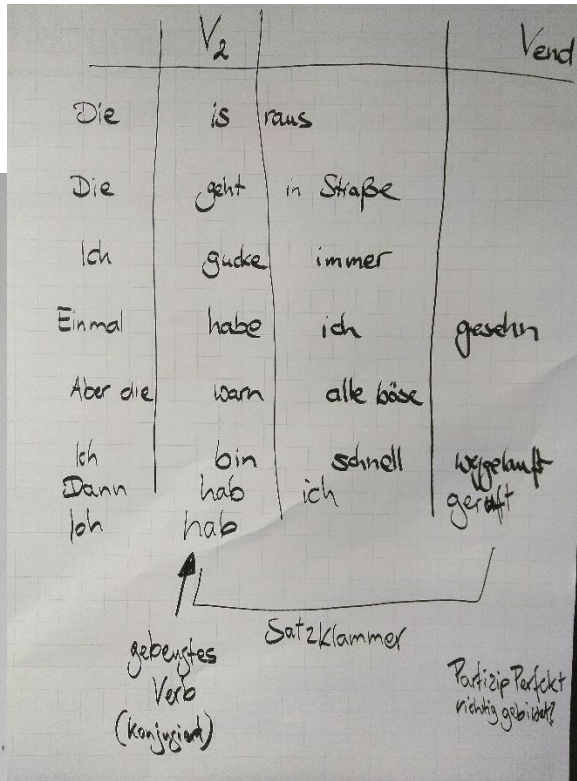 V2 Vend
Die is raus
Die geht in Straße
Ich gucke immer
Einmal habe ich gesehn
Aber die warn alle böse
Ich bin schnell weggelauft
Dann hab ich geruft
Ich hab
Satzklammer
gebeugtes
Verb
(konjugiert)
Partizip Perfekt
richtig gebildet?